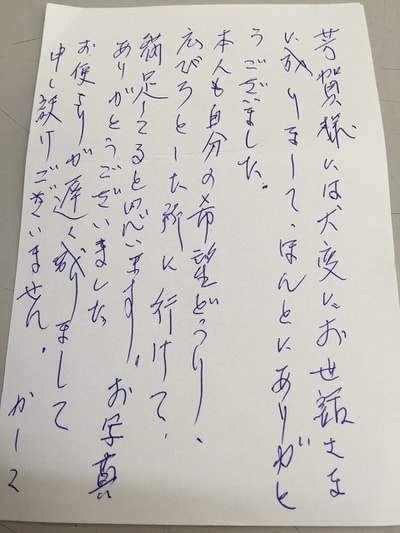 芳賀様には大変にお世話さま
に成りまして、ほんとにありがと
うございました。
本人も自分の希望どうり、
広びろとした所に行けて、
満足してると思います。お写真
ありがとうございました
お便りが遅く成りまして
申し訳けございません。かしこ